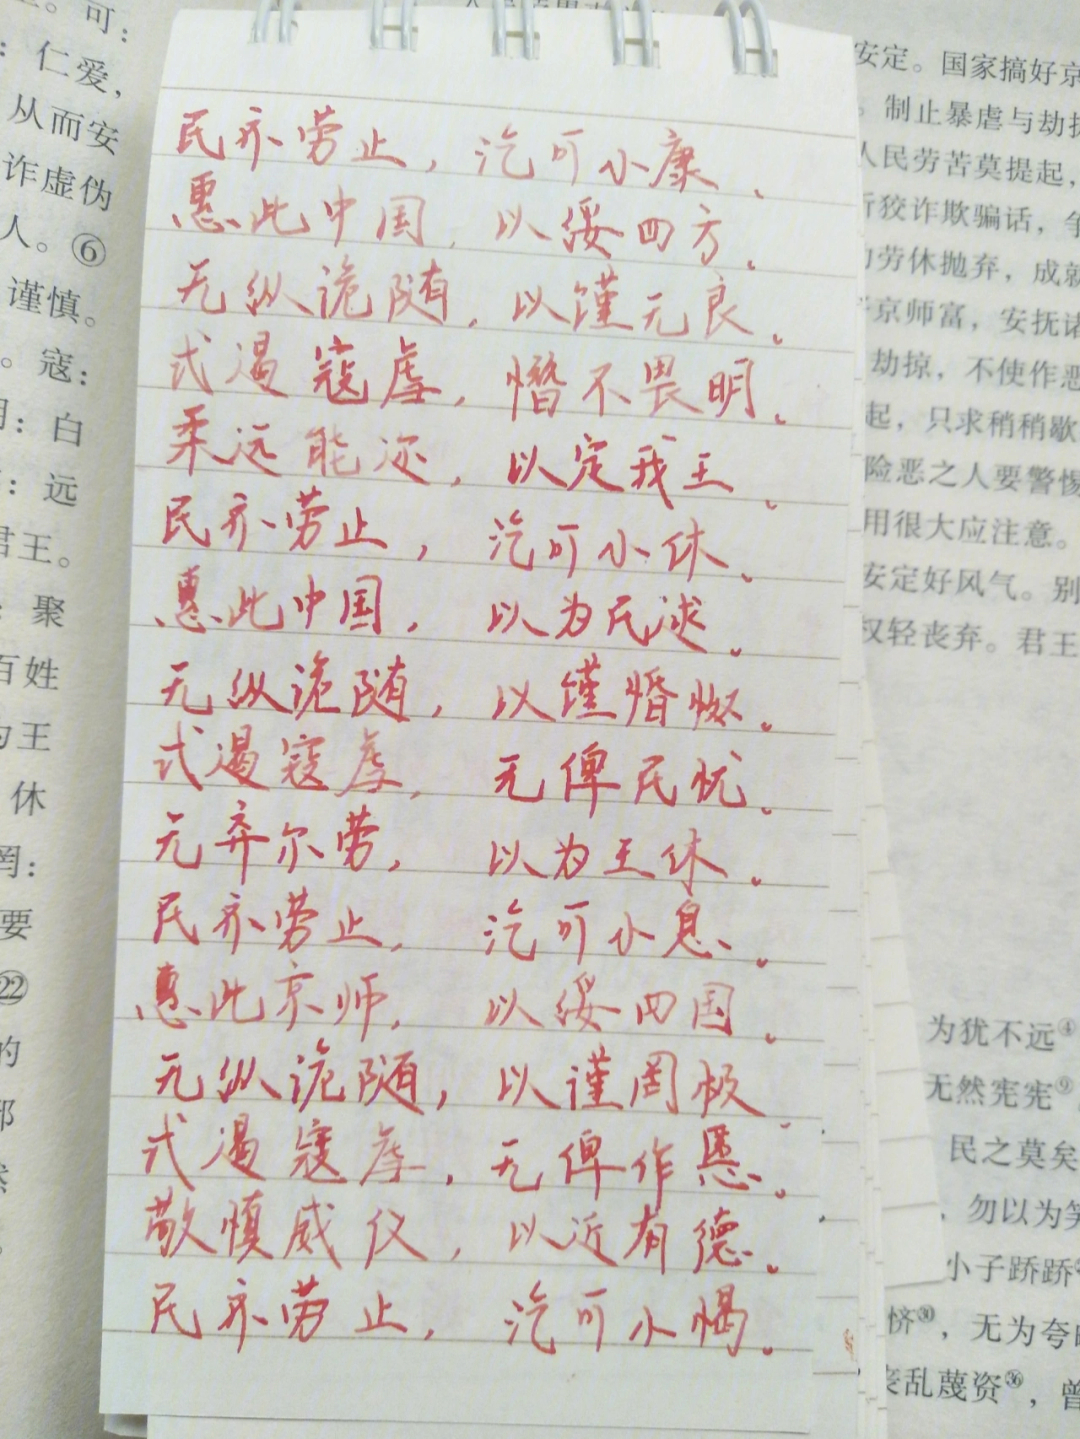 民亦劳止，汔可小康、
惠此中国，以绥四方。
无纵诡随，以谨无良。
式遏寇虐，憯不畏明。
柔远能迩，以定我王。
民亦劳止，汔可小休。
惠此中国，以为民逑。
无纵诡随，以谨惽怓。
式遏寇虐，无俾民忧。
无弃尔劳，以为王休。
民亦劳止，汔可小息。
惠此京师，以绥四国。
无纵诡随，以谨罔极
式遏寇虐，无俾作慝。
敬慎威仪，以近有德。
民亦劳止，汔可小愒。
可：
仁爱，
从而安
诈虚伪
人。⑥
谨慎。
。寇：
：白
：远
君王。
：聚
百姓
为王
休
罔：
要
㉒
的
安定。国家搞好京
。制止暴虐与劫掠
人民劳苦莫提起，
听狡诈欺骗话，
劳休抛弃，成就
京师富，安抚诸
劫掠，不使作恶
起，只求稍稍歇
险恶之人要警惕
用很大应注意。
安定好风气。别
权轻丧弃。君王
为犹不远④
无然宪宪⑨
民之莫矣
，勿以为笑
小子蹻蹻
懠㉚，无为夸毗
丧乱蔑资㊱，曾